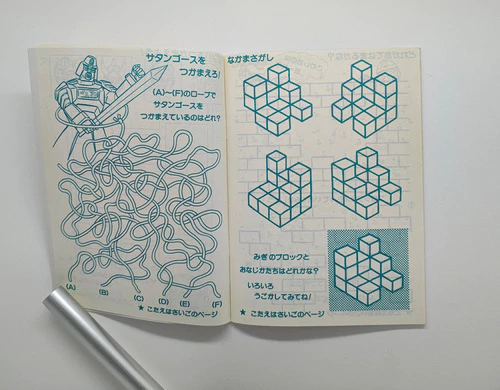 サタンゴースを
つかまえろ!
(A)〜(F)のロープで
サタンゴースを
つかまえているのはどれ?
(A)
(B)
(C)
(D)
(E)
(F)
★ こたえはさいごのページ
なかまさがし
みぎのブロックと
おなじかたちはどれかな?
いろいろ
うごかしてみてね!
★ こたえはさいごのページ